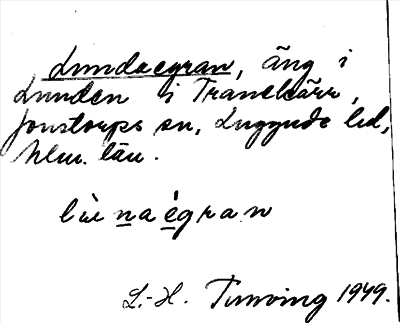 Lundaegran, äng i
Lunden i Tranekärr,
Jonstorps sn, Luggude hd,
Mlm. län.
lùnaégran
L.-H. Tunving 1949.